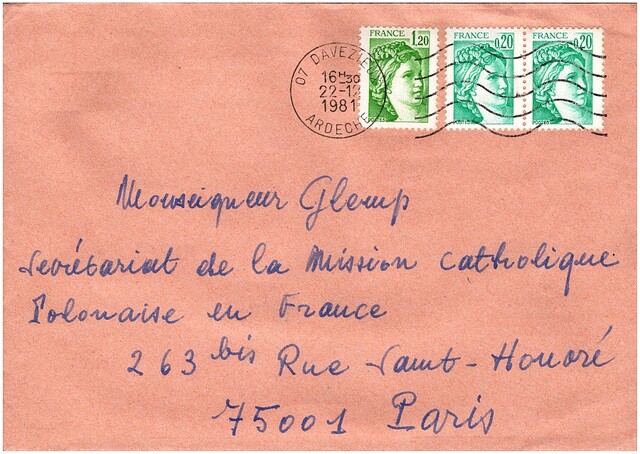 FRANCE 1,20
FRANCE 0,20
FRANCE 0,20
07 DAVEZIEUX
16H30
22-12
1981
ARDECHE
Monseigneur Glemp
Secrétariat de la Mission Catholique
Polonaise en France
263 bis Rue Saint-Honoré
75001 Paris